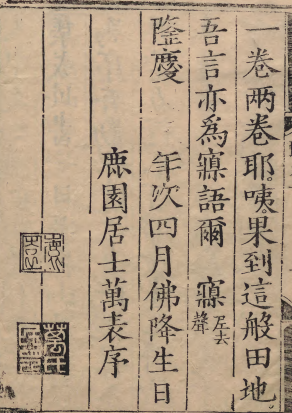 一卷兩卷耶。咦。果到這般田地。
吾言亦為寐語爾　寐𡰱去聲
隆慶　年次四月佛降生日
鹿園居士萬表序